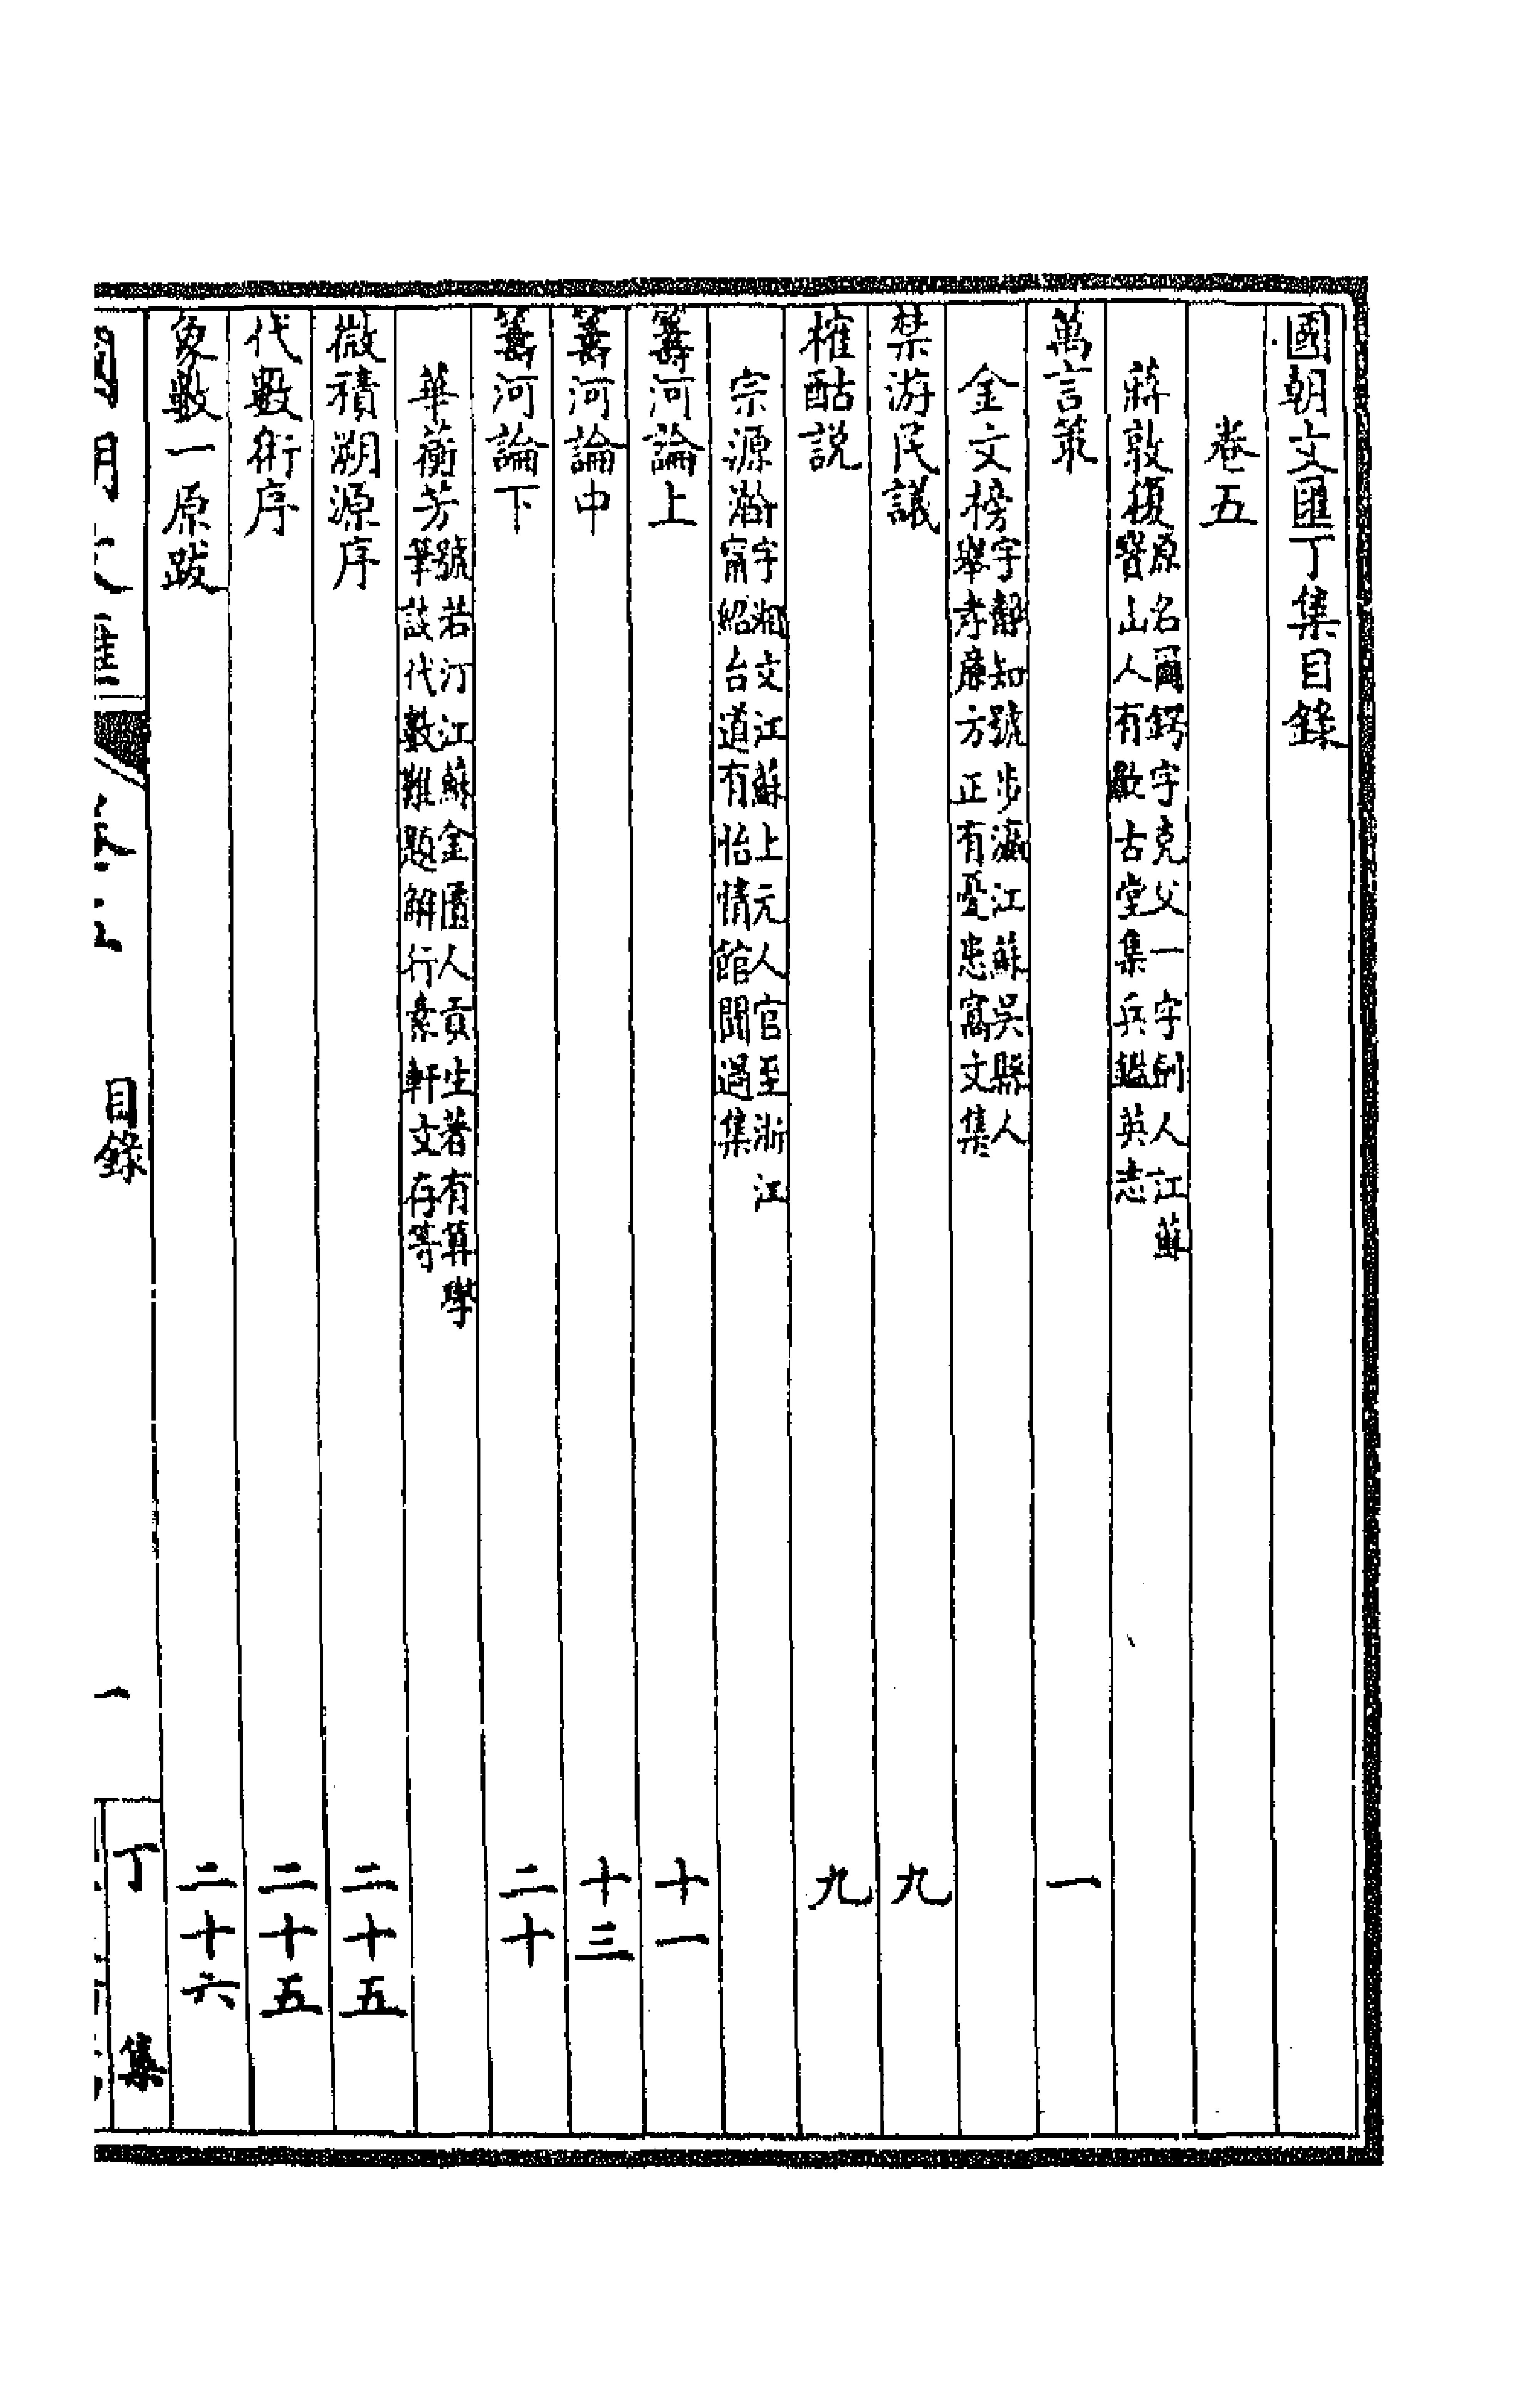 國朝文匯丁集目錄
卷五
蔣敦復原名爾鍔字克父一字劍人江蘇
寶山人有嘯古堂集兵鑑英志
萬言策 一
金文榜字馨知號步瀛江蘇吳縣人
舉孝廉方正有憂患寓文集
禁游民議 九
榷酤説 九
宗源瀚字湘文江蘇上元人官至浙江
甯紹台道有怡情館聞過集
籌河論上 十一
籌河論中 十三
籌河論下 二十
華蘅芳號若汀江蘇金匱人貢生著有算學
筆談代數難題解行素軒文存等
微積溯源序 二十五
代數術序 二十五
象數一原跋 二十六
目錄 一 丁集